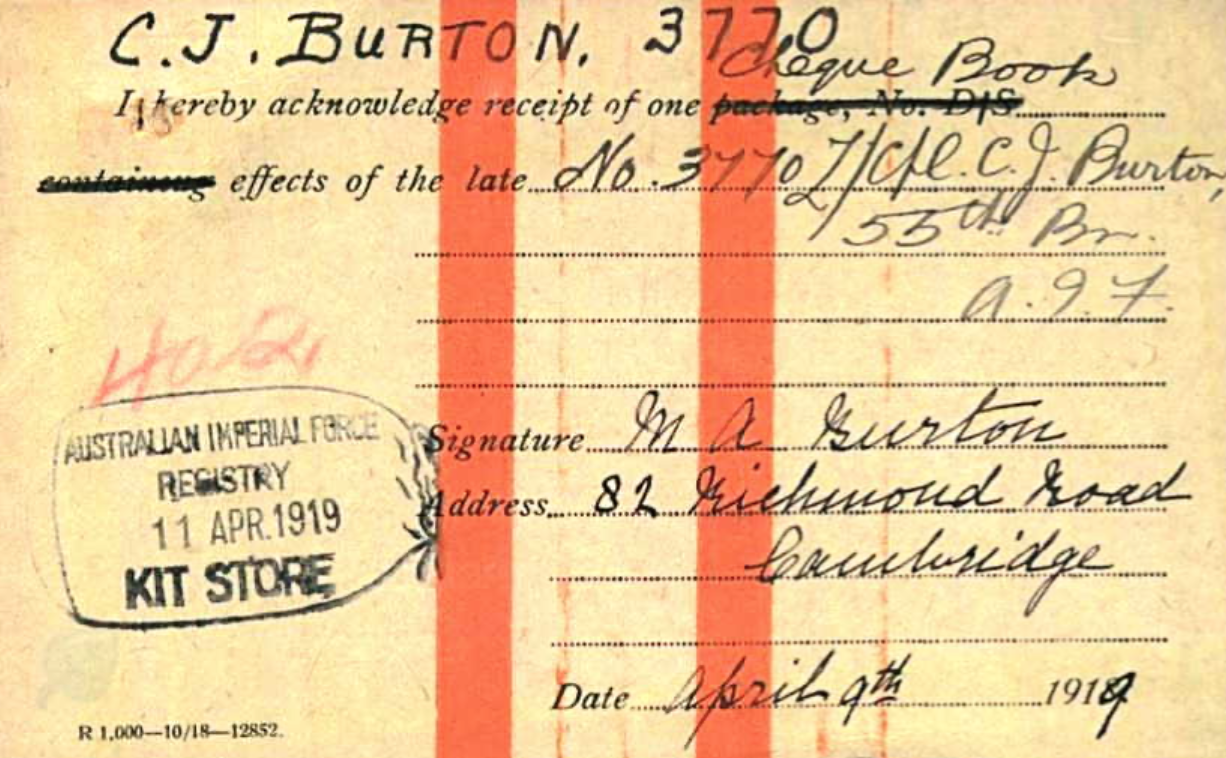 C. J. BURTON. 3770
Cheque Book
I hereby acknowledge receipt of one package, No. D/S
containing effects of the late No. 3770 T/Cpl. C. J. Burton,
55th Bn.
A. I. F.
402
AUSTRALIAN IMPERIAL FORCE
REGISTRY
11 APR. 1919
KIT STORE
Signature M A Burton
Address 82 Richmond Road
Cambridge
Date April 9th 1919
R 1,000—10/18—12852.